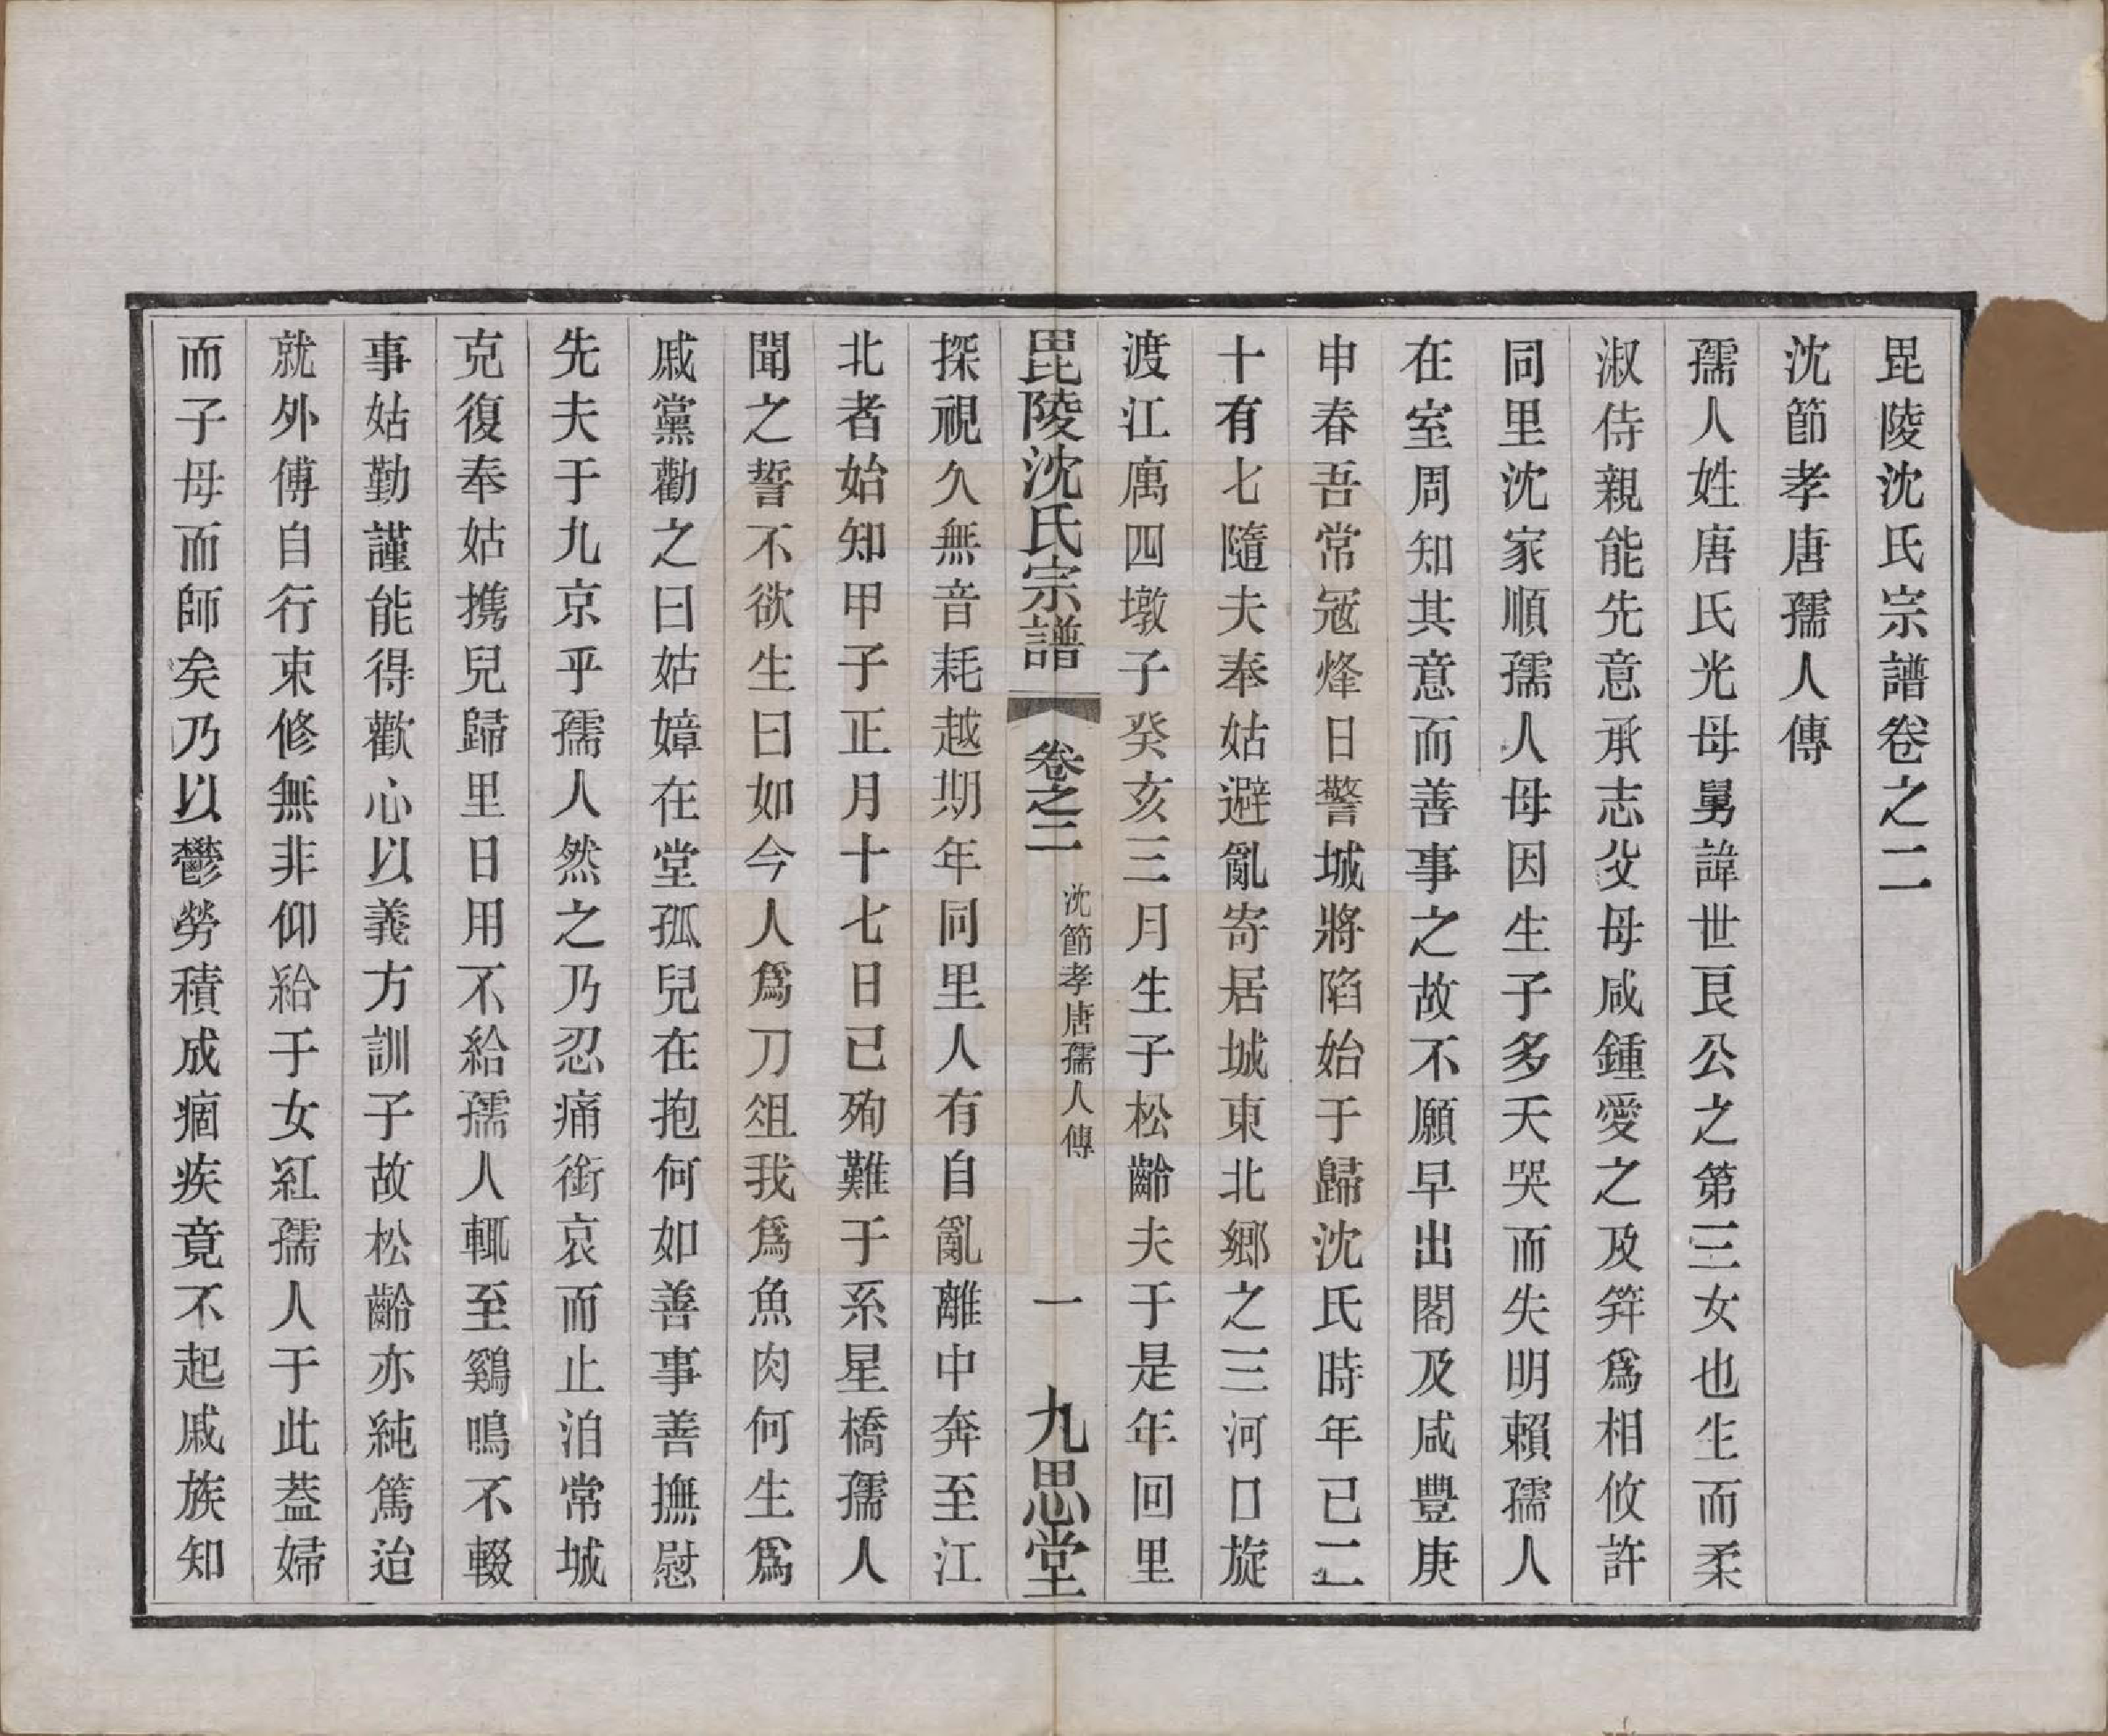 毘陵沈氏宗譜卷之二
沈節孝唐孺人傳
孺人姓唐氏光母舅諱世艮公之第三女也生而柔
淑侍親能先意承志父母咸鍾愛之及笄爲相攸許
同里沈家順孺人母因生子多夭哭而失明賴孺人
在室周知其意而善事之故不願早出閣及咸豐庚
申春吾常冦烽日警城將陷始于歸沈氏時年已二
十有七隨夫奉姑避亂寄居城東北郷之三河口旋
渡江寓四墩子癸亥三月生子松齡夫于是年回里
毘陵沈氏宗譜 卷之二 沈節孝唐孺人傳 一 九思堂
探視久無音耗越期年同里人有自亂離中奔至江
北者始知甲子正月十七日已殉難于系星橋孺人
聞之誓不欲生曰如今人爲刀俎我爲魚肉何生爲
戚黨勸之曰姑嫜在堂孤兒在抱何如善事善撫慰
先夫于九京乎孺人然之乃忍痛銜哀而止洎常城
克復奉姑携兒歸里日用不給孺人輒至鷄鳴不輟
事姑勤謹能得歡心以義方訓子故松齡亦純篤迨
就外傅自行束修無非仰給于女紅孺人于此葢婦
而子母而師矣乃以鬱勞積成痼疾竟不起戚族知